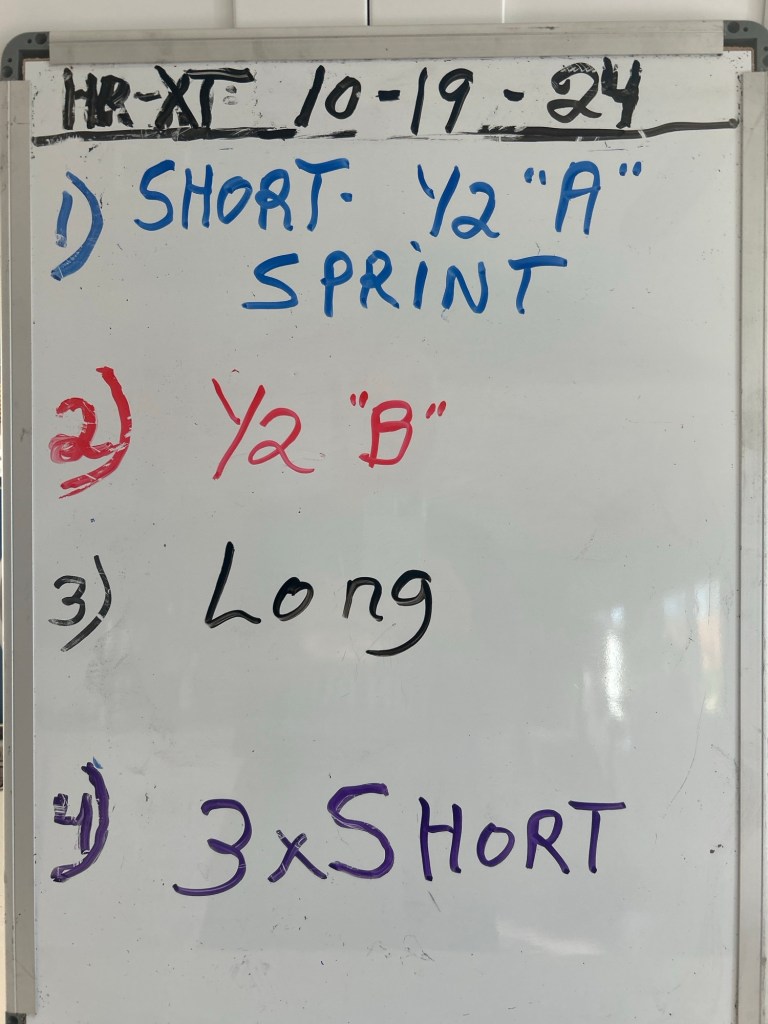 HR-XT 10-19-24
1) SHORT. 1/2 "A"
SPRINT
2) 1/2 "B"
3) Long
4) 3xSHORT